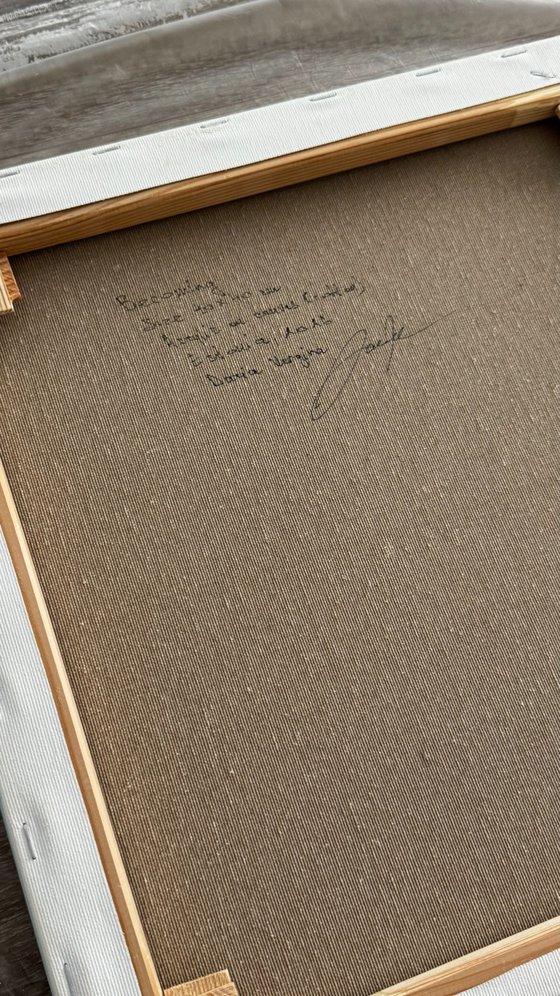 Becoming
Size 40*40 cm
Acrylic on canvas (cotton)
Estonia, 2025
Daria